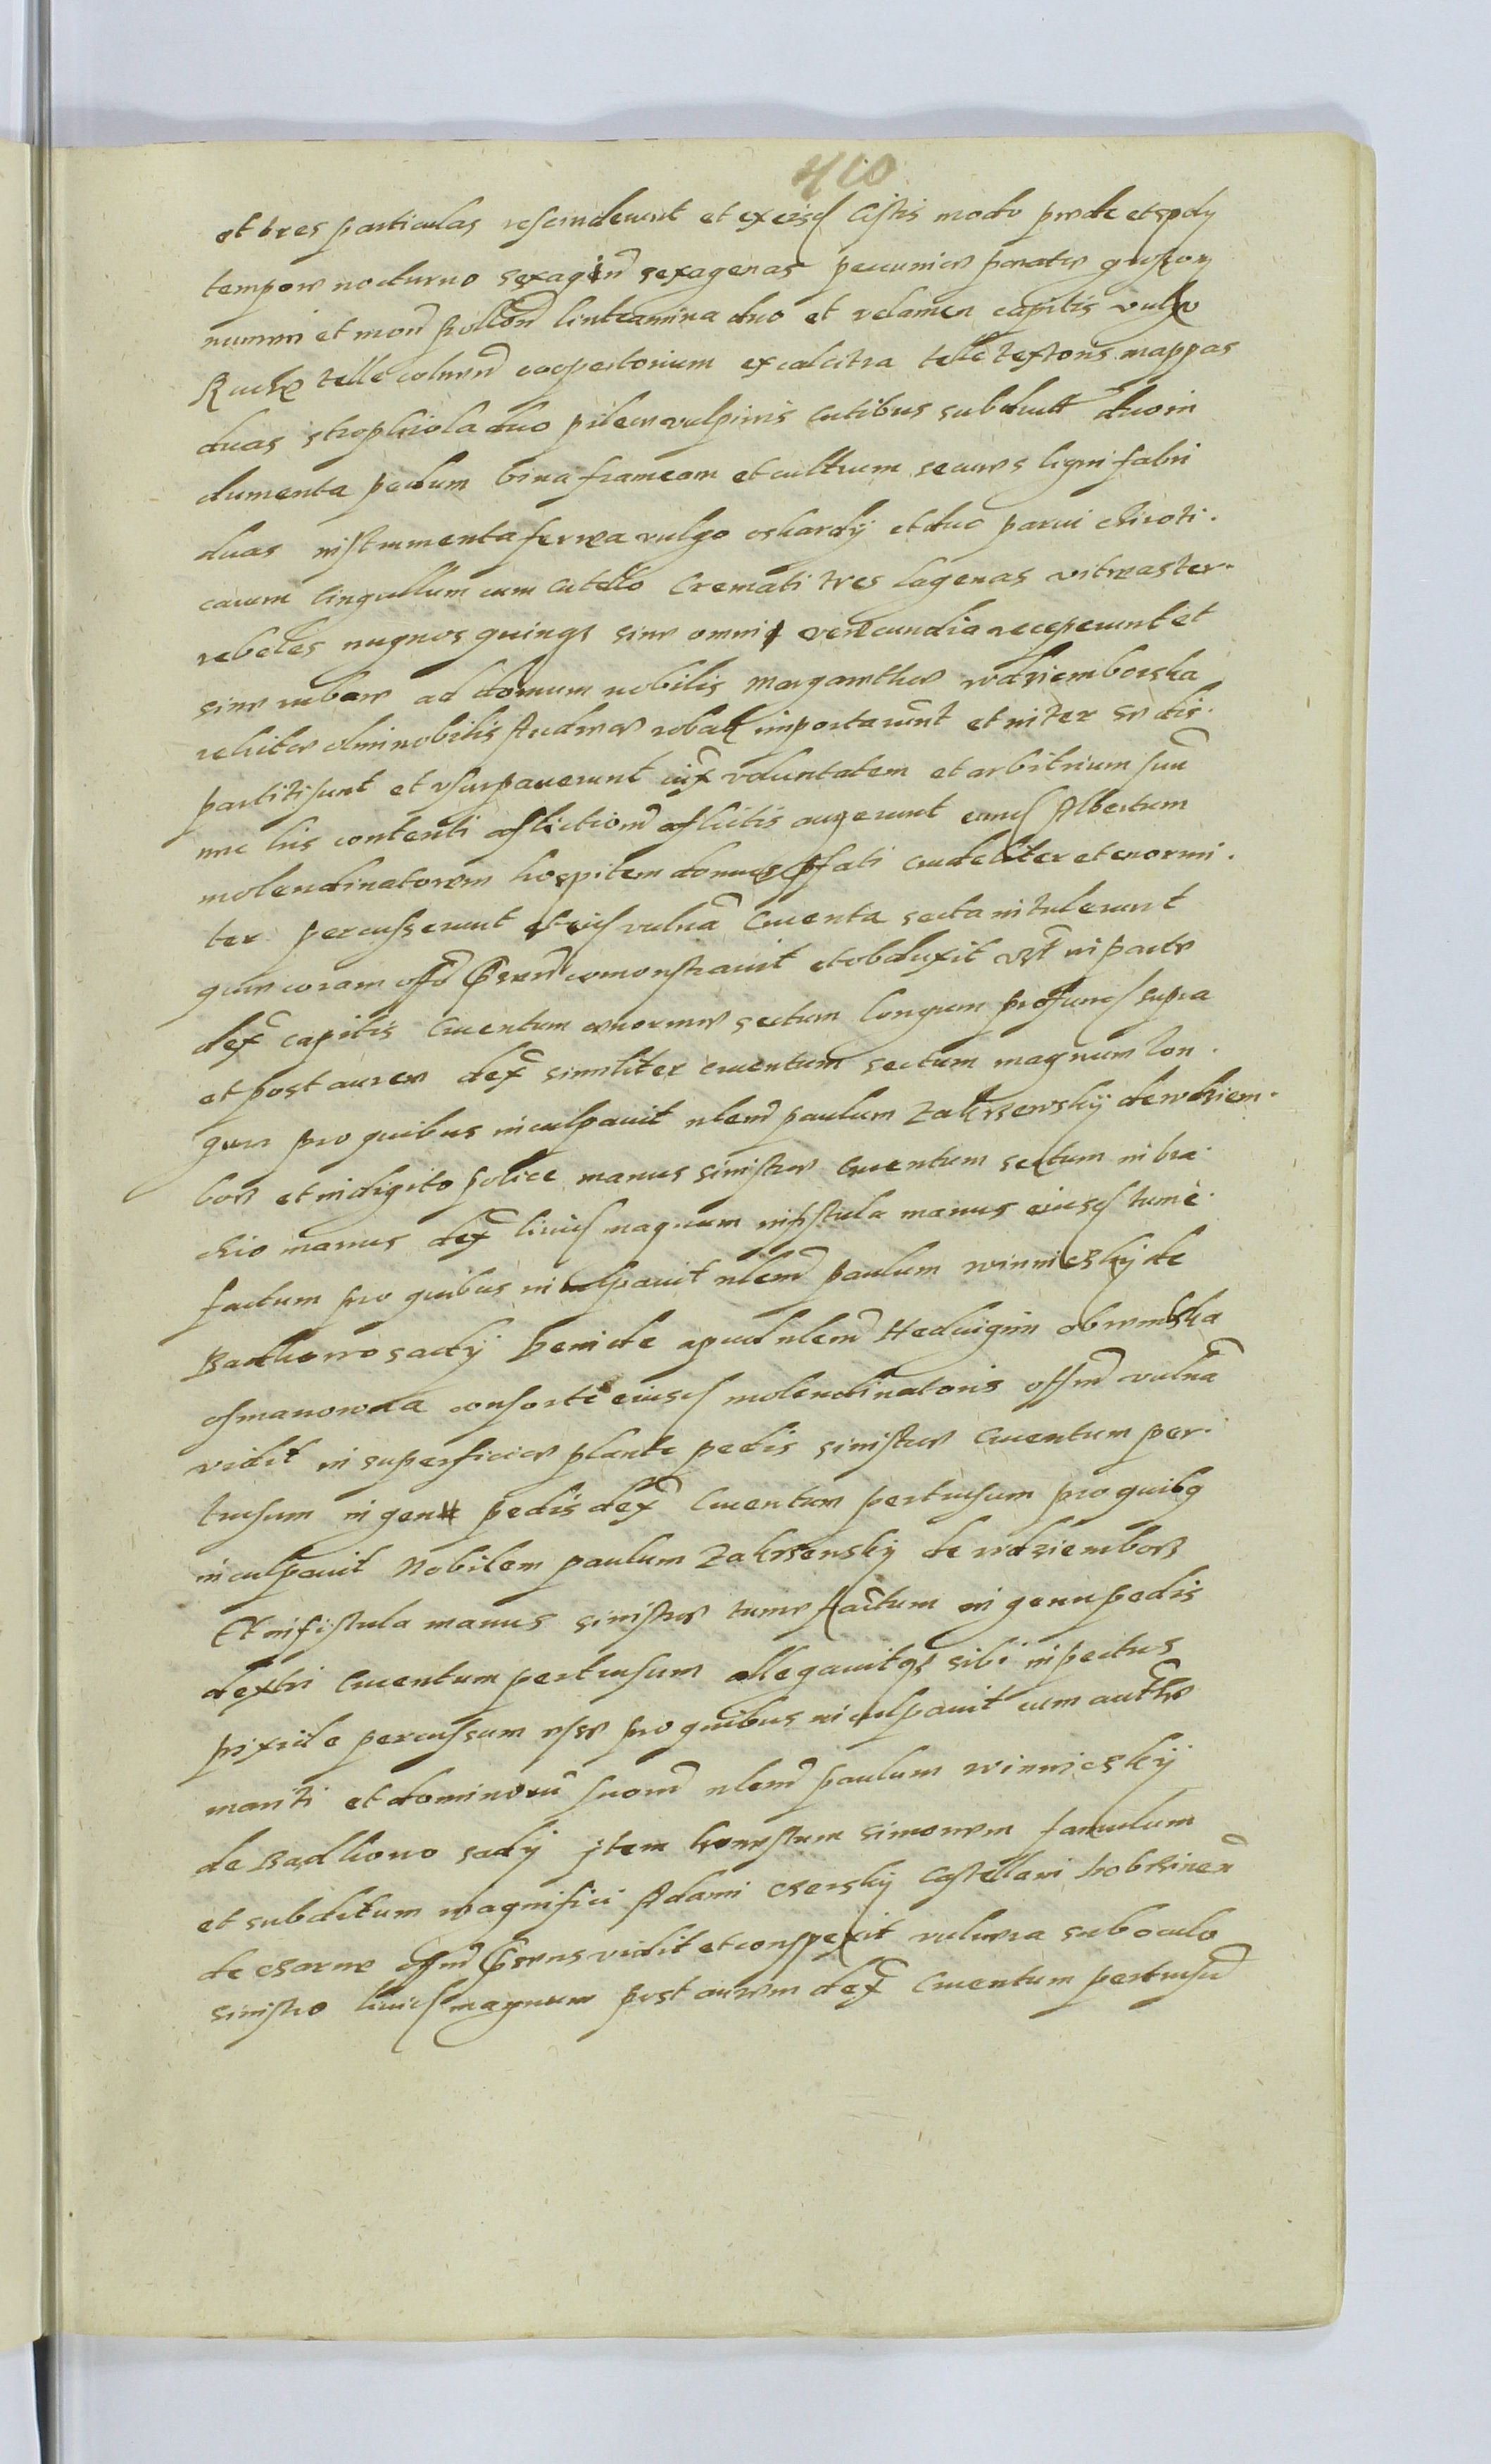 410
et tres particulas rescinderunt et ex eisd Cistis modo prdc et spdy
tempore nocturno sexagind sexagenas pecuniæ paratæ grossorum
numeri et mon Pollon linteamina duo et velamen capitis vulgo
telle coopertorium ex calcitra telle textoris mappas
duas strophiola duo pileum vulpinis cutibus subduct duo in
dumenta pedum bina frameam et cultrum secures ligni fabri
duas instrumenta ferrea vulgo oskardy et duo parui chiroti.
carum cingullum cum cutello Cremati tres lagenas vitreas ter.
rebeles magnos quinqs sine omni verecundia receperunt et
sine rubore ad domum nobilis Margarethæ wdziemborska
relictæ olim nobilis Andreæ importarunt et inter se dis.
partiti sunt et usurpauerunt iux voluntatem et arbitrium suu
nec his contenti aflictiom aflictis auxerunt eund Albertum
molendinatorem hospitem domus pfati crudeliter et enormi.
ter percusserunt et eid vulna Cruenta secta intulerunt
quæ coram offo psend comonstrauit et obduxit vzt in parte
dex capitis Cruentum enorme sectum longum profund supra
et post aurem dex similiter cruentum sectum magnum lon.
gum pro quibus inculpauit nlem paulum Zakrzewsky de wdziem.
borz et in digito police manus sinistræ Cruentum sectum in bra.
chio manus dex liuid magnum in fistula manus eiusd tume.
factum pro quibus inculpauit nlem paulum winnicsky de
Badkowo sady Deinde apud nlem Heduigim
osmanowna consorte eiusd molendinatoris offm vulna
vidit in superficie plante pedis sinistræ Cruentum per.
trusum in genu pedis dex Cruentum pertrusum pro quibq
inculpauit Nobilem paulum Zakrzensky de wdziemborz
Et in fistula manus sinistræ tume factum in genu pedis
dextri Cruentum pertrusum allegauitqs sibi in pectus
pixide percussum esse pro quibus inculpauit cum authæ
mariti et dominoru suom nlem paulum winnicsky
de Badkowo sady item honestum simonem famulum
et subditum magnifici Adami csersky Castellani
de csarne offm psens vidit et conspexit vulnera sub oculo
sinistro liuid magnum post aurem dex Cruentum pertrusu